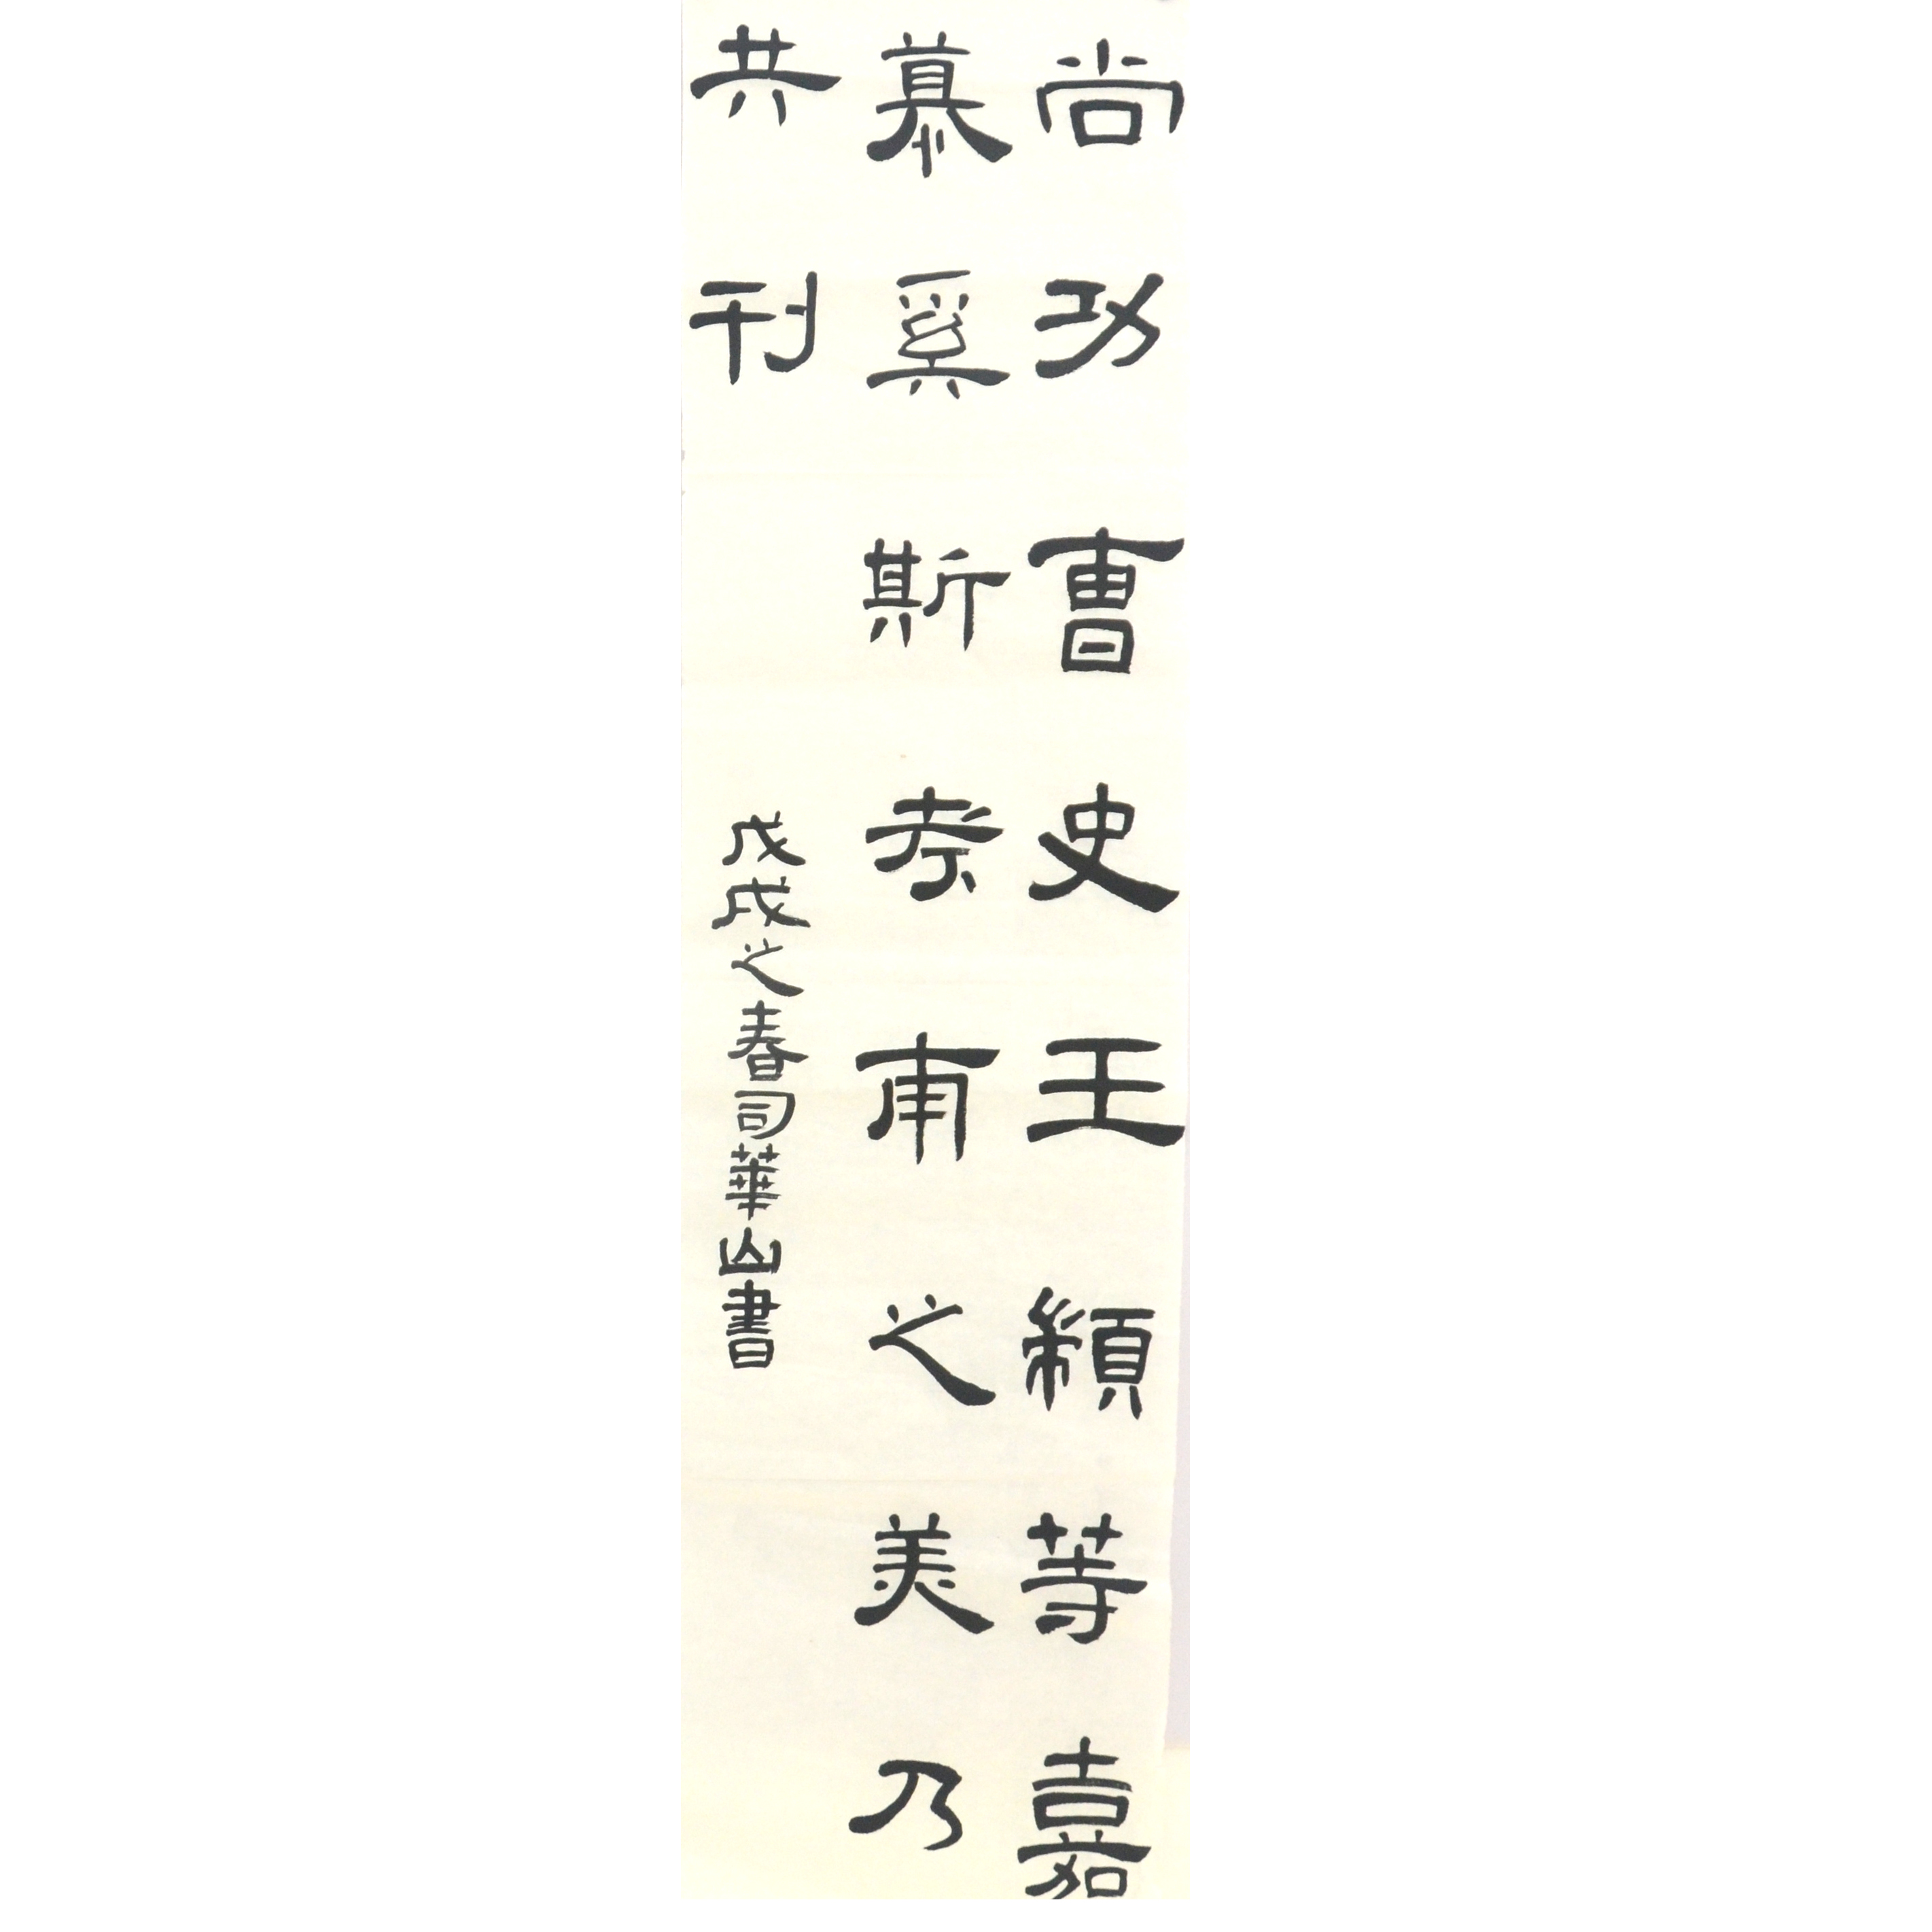 尚功曹史王顈等嘉
慕奚斯考甫之美乃
共刊
戊戌之春司華山書